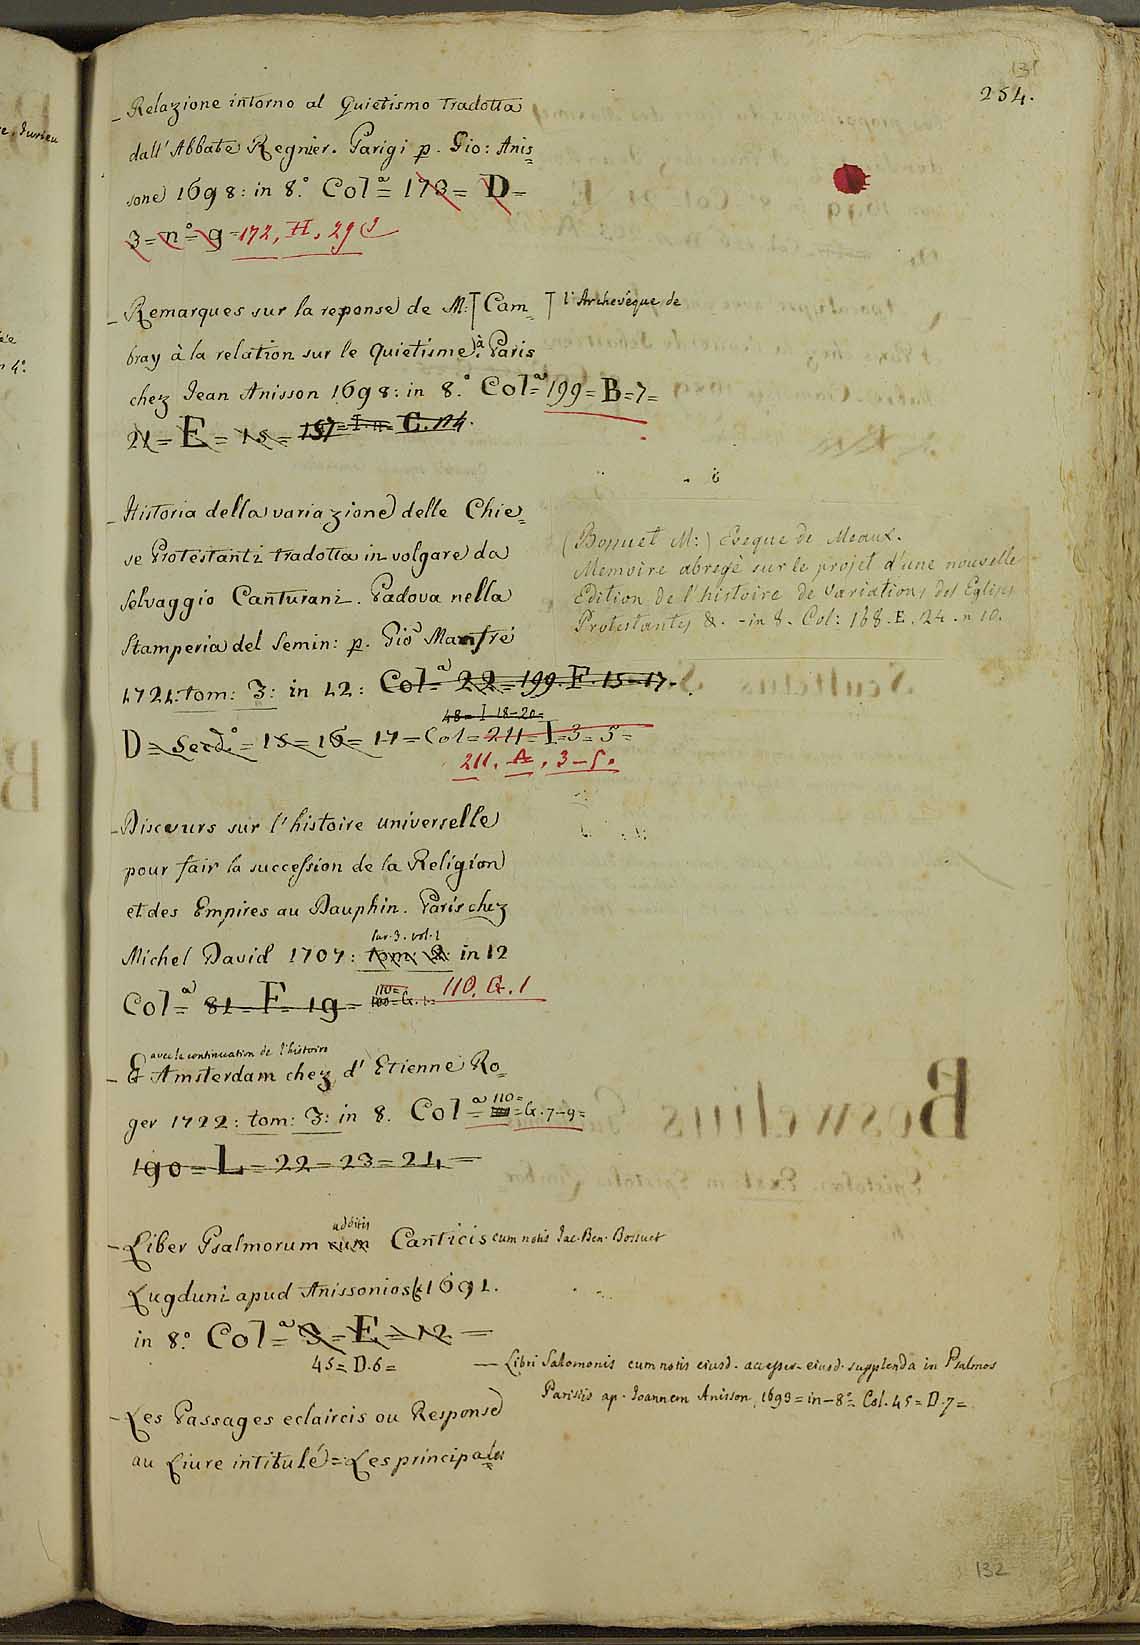 131
254.
_ Relazione intorno al Quietismo tradotta
dall' Abbate Regnier. Parigi p. Gio: Anis=
sone 1698: in 8.° Col.ª = 173 = D =
3 = n° = 9 = 172, H, 29
_ Remarques sur la reponse de M: [ Cam= ] l'Archevéque de
bray à la relation sur le Quietisme: à Paris
chez Jean Anisson 1698: in 8.° Col.ª = 199 = B = 7 =
21 = E = 15 = 157 = I. n = C. 124.
_ Historia della variazione delle Chie=
se Protestanti tradotta in volgare da
Selvaggio Canturani. Padova nella
Stamperia del Semin: p. Gio Manfré
1721: tom: 3: in 12: Col.ª = 22 = 199. F. 15 = 17.
48 = I 18-20 =
D = Secd.° = 15 = 16 = 17 = Col = 211 = I = 3 = 5 =
211. A, 3-5.
(Bossuet M:) Eveque de Meaux.
Memoire abregè sur le projet d'une nouvelle
Edition de l'histoire de Variations des Eglises
Protestantes &. - in 8. Col: 168. E. 24. n 10.
_ Discours sur l'histoire universelle
pour fair la succession de la Religion
et des Empires au Dauphin. Paris chez
par. 3. vol. 1
Michel David 1707: tom: 2: in 12
Col.ª = 81 = F = 19 = 110 = G. 1. 110. G. 1
avec le continuation de l'histoire
_ & Amsterdam chez d' Etienne Ro=
ger 1722: tom: 3: in 8. Col.ª = 110 = G. 7-9 =
190 = L = 22 = 23 = 24 =
additis
_ Liber Psalmorum cum Canticis cum notis Jac. Ben. Bossuet
Lugduni apud Anissonios 1691.
in 8.° Col.ª = 3 = E = 12 =
45 = D. 6 =
— Libri Salomonis cum notis eiusd. accesser. eiusd. supplenda in Psalmos
Parisiis ap. Joannem Anisson, 1693 = in - 8.° = Col. 45 = D. 7 =
_ Les Passages eclaircis ou Response
au Liure intitulé = Les principales
132